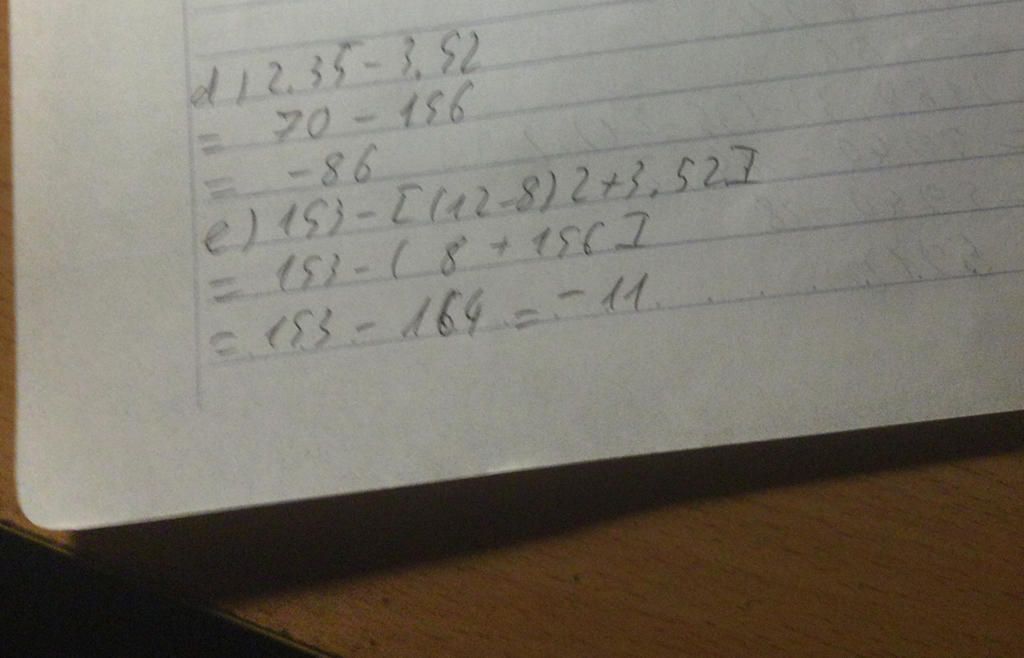 d) 2.35 - 3.52
= 70 - 156
= -86
e) 153 - [(12-8)2+3.52]
= 153 - ( 8 + 156]
= 153 - 164 = -11